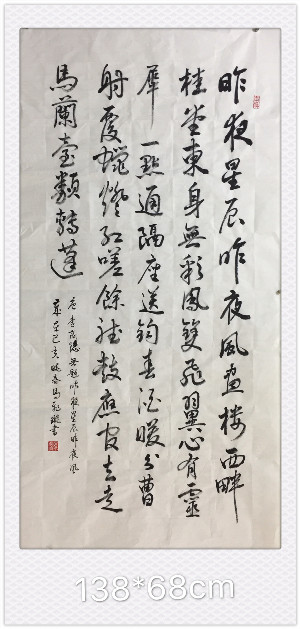 昨夜星辰昨夜風画楼西畔
桂堂東身無彩鳳雙飛翼心有靈
犀一點通隔座送鈎春酒暖分曹
射覆蠟燈紅嗟餘聽鼓應官去走
馬蘭臺類轉蓬
唐李商隱無題昨夜星辰昨夜風
歲在己亥春馬書
138*68cm